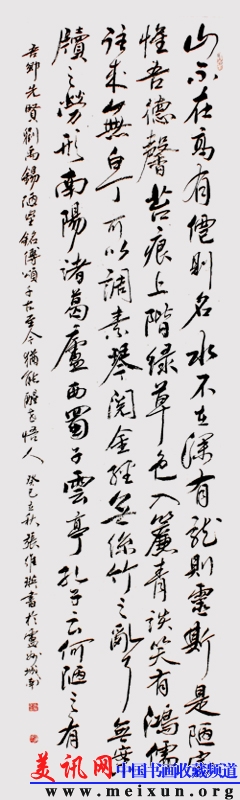 山不在高有僊則名水不在深有龍則靈斯是陋室
惟吾德馨苔痕上階綠草色入簾青談笑有鴻儒
往來無白丁可以調素琴閱金經無絲竹之亂耳無案
牘之勞形南陽諸葛廬西蜀子雲亭孔子云何陋之有
吾鄉先賢劉禹錫陋室銘傳頌千古至今猶能醒悟人 癸巳立秋 張維書於城
美讯网 中国书画收藏频道
www.meixun.org